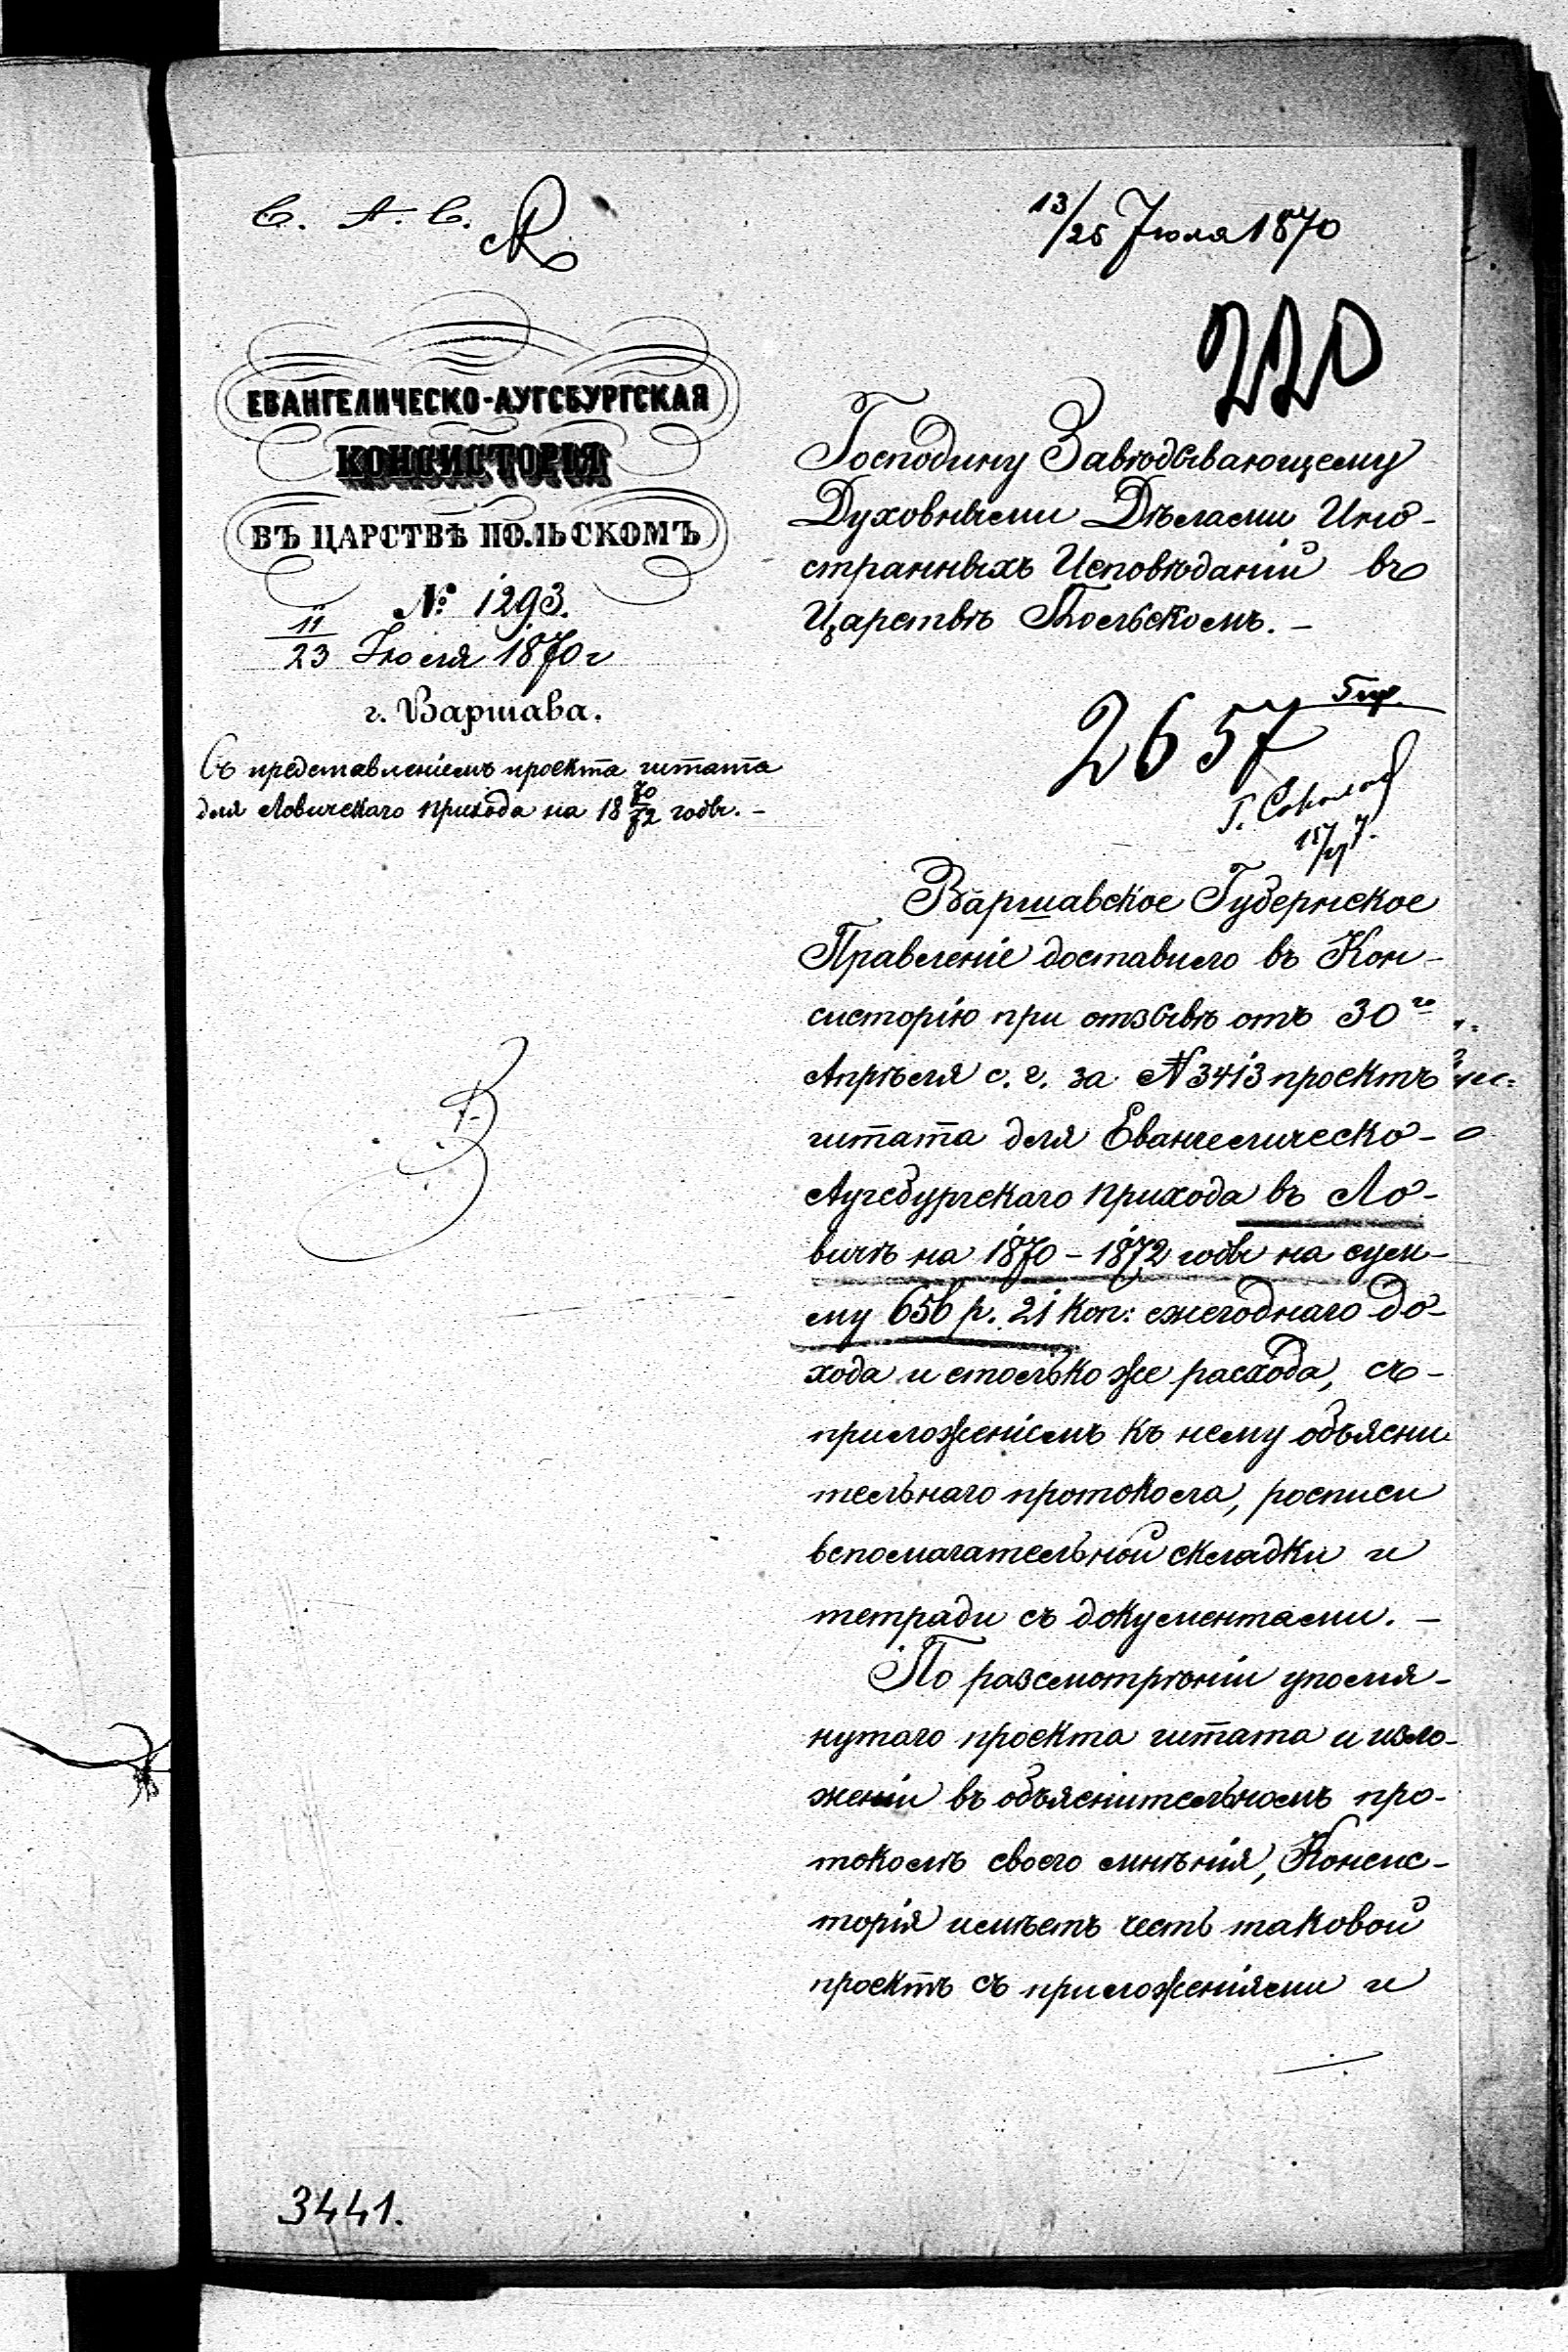 С. А. С.
13/25 Іюля 1870
220
ЕВАНГЕЛИЧЕСКО-АУГСБУРГСКАЯ
КОНСИСТОРІЯ
ВЪ ЦАРСТВѢ ПОЛЬСКОМЪ
№ 1293.
11/23 Іюля 1870 г
г. Варшава.
Съ представленіемъ проекта штата
для Ловичскаго прихода на 18 70/72 годы. –
Господину Завѣдывающему
Духовными Дѣлами Ино-
странныхъ Исповѣданій въ
Царствѣ Польскомъ. –
2657
Г. Соколов
15/VII
Варшавское Губернское
Правленіе доставило въ Кон-
систорію при отзывѣ отъ 30го
Апрѣля с. г. за № 3413 проектъ
штата для Евангелическо-
Аугсбургскаго прихода въ Ло-
вичѣ на 1870 – 1872 годы на сум-
му 656 р. 21 коп: ежегоднаго до-
хода и столько же расхода, съ-
приложеніемъ къ нему объясни
тельнаго протокола, росписи
вспомагательной складки и
тетради съ документами. –
По разсмотрѣніи упомя-
нутаго проекта штата и изло-
женіи въ объяснительномъ про-
токолѣ своего мнѣнія, Консис-
торія имѣетъ честь таковой
проектъ съ приложеніями и
3441.